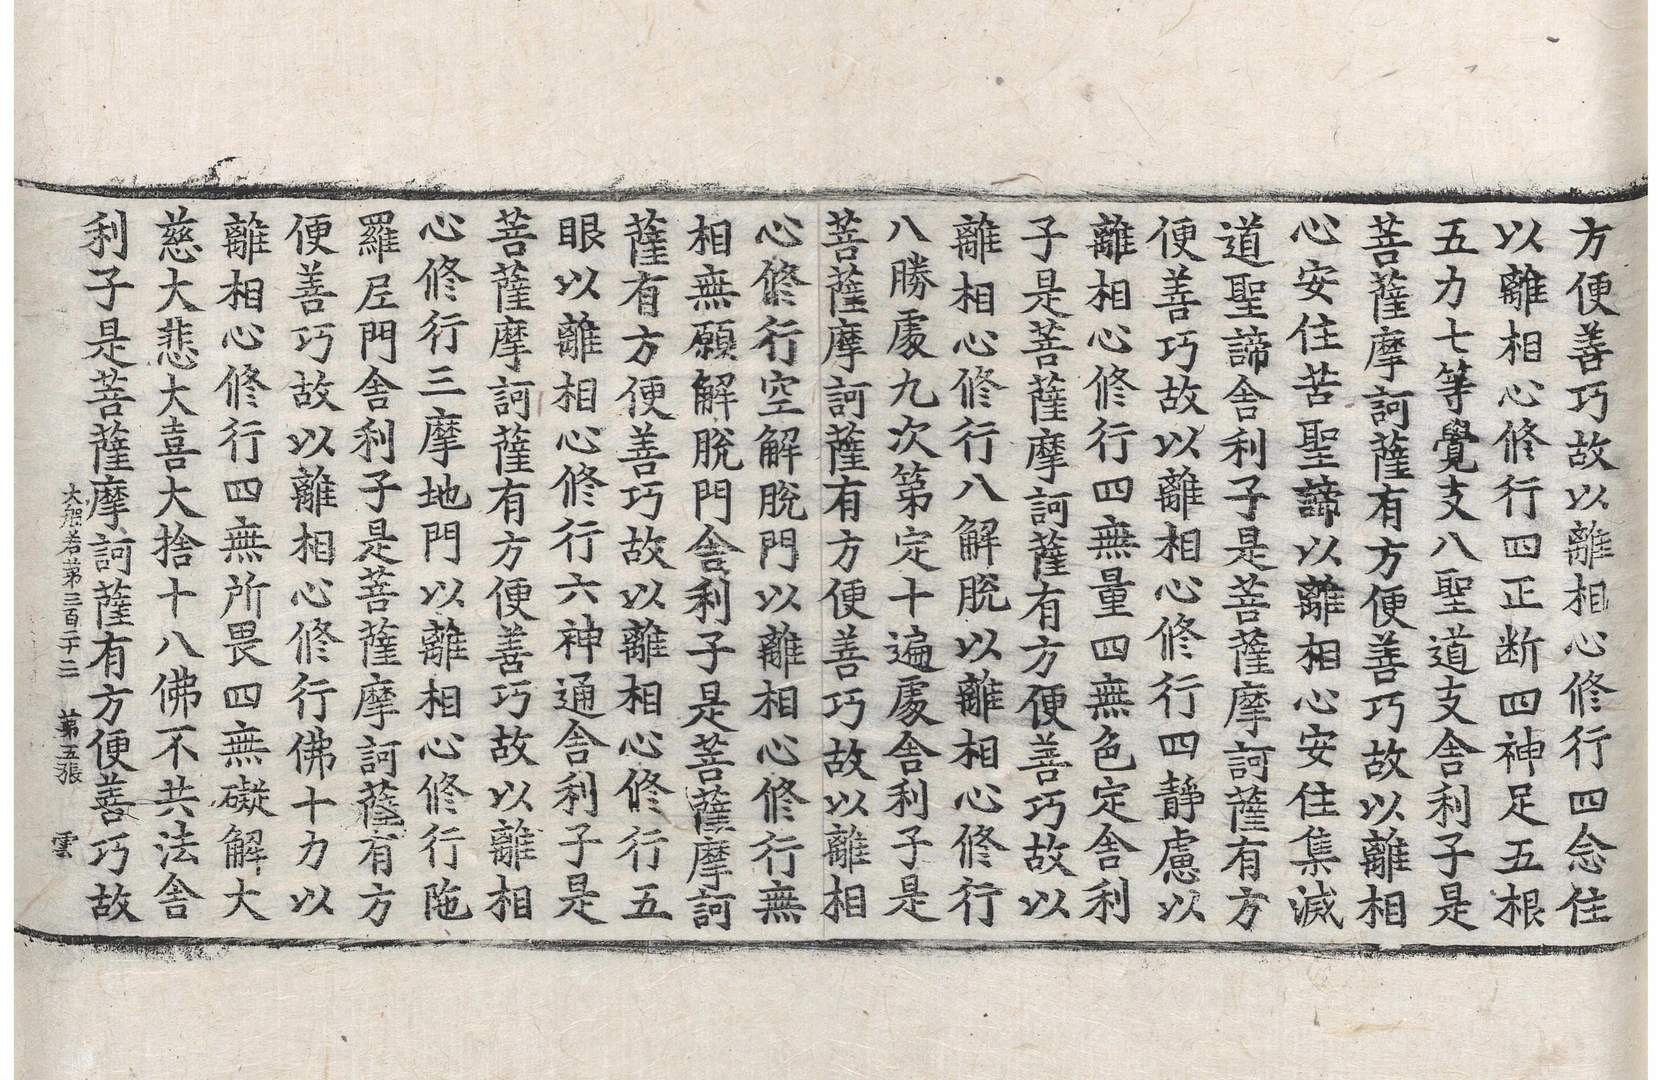 方便善巧故以離相心修行四念住
以離相心修行四正断四神足五根
五力七等覺支八聖道支舎利子是
菩薩摩訶薩有方便善巧故以離相
心安住苦聖諦以離相心安住集滅
道聖諦舎利子是菩薩摩訶薩有方
便善巧故以離相心修行四靜慮以
離相心修行四無量四無色定舎利
子是菩薩摩訶薩有方便善巧故以
離相心修行八解脫以離相心修行
八勝處九次第定十遍處舎利子是
菩薩摩訶薩有方便善巧故以離相
心修行空解脫門以離相心修行無
相無願解脫門舎利子是菩薩摩訶
薩有方便善巧故以離相心修行五
眼以離相心修行六神通舎利子是
菩薩摩訶薩有方便善巧故以離相
心修行三摩地門以離相心修行陁
羅尼門舎利子是菩薩摩訶薩有方
便善巧故以離相心修行佛十力以
離相心修行四無所畏四無礙解大
慈大悲大喜大捨十八佛不共法舎
利子是菩薩摩訶薩有方便善巧故
大般若第三百二十二 第五張 雲